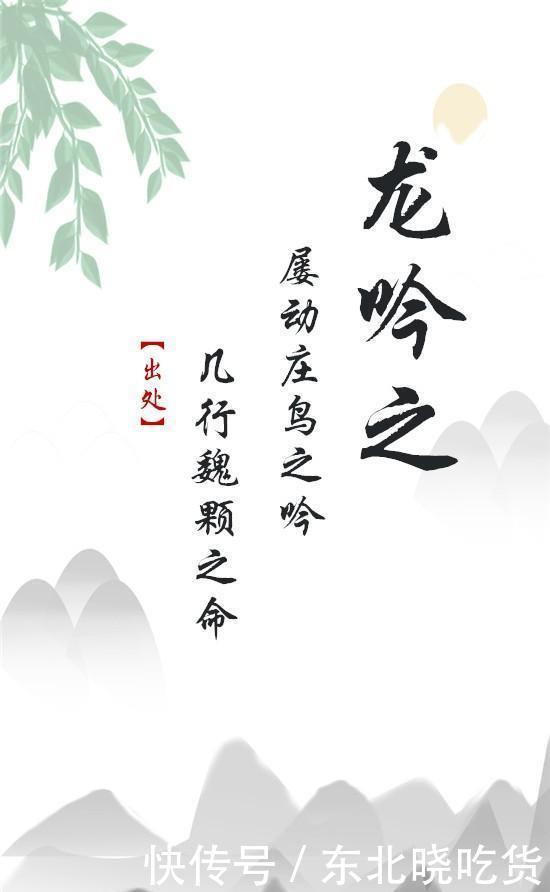 龙吟之
屡动庄鸟之吟
几行魏颗之命
【出处】
快传号/东北晓吃货